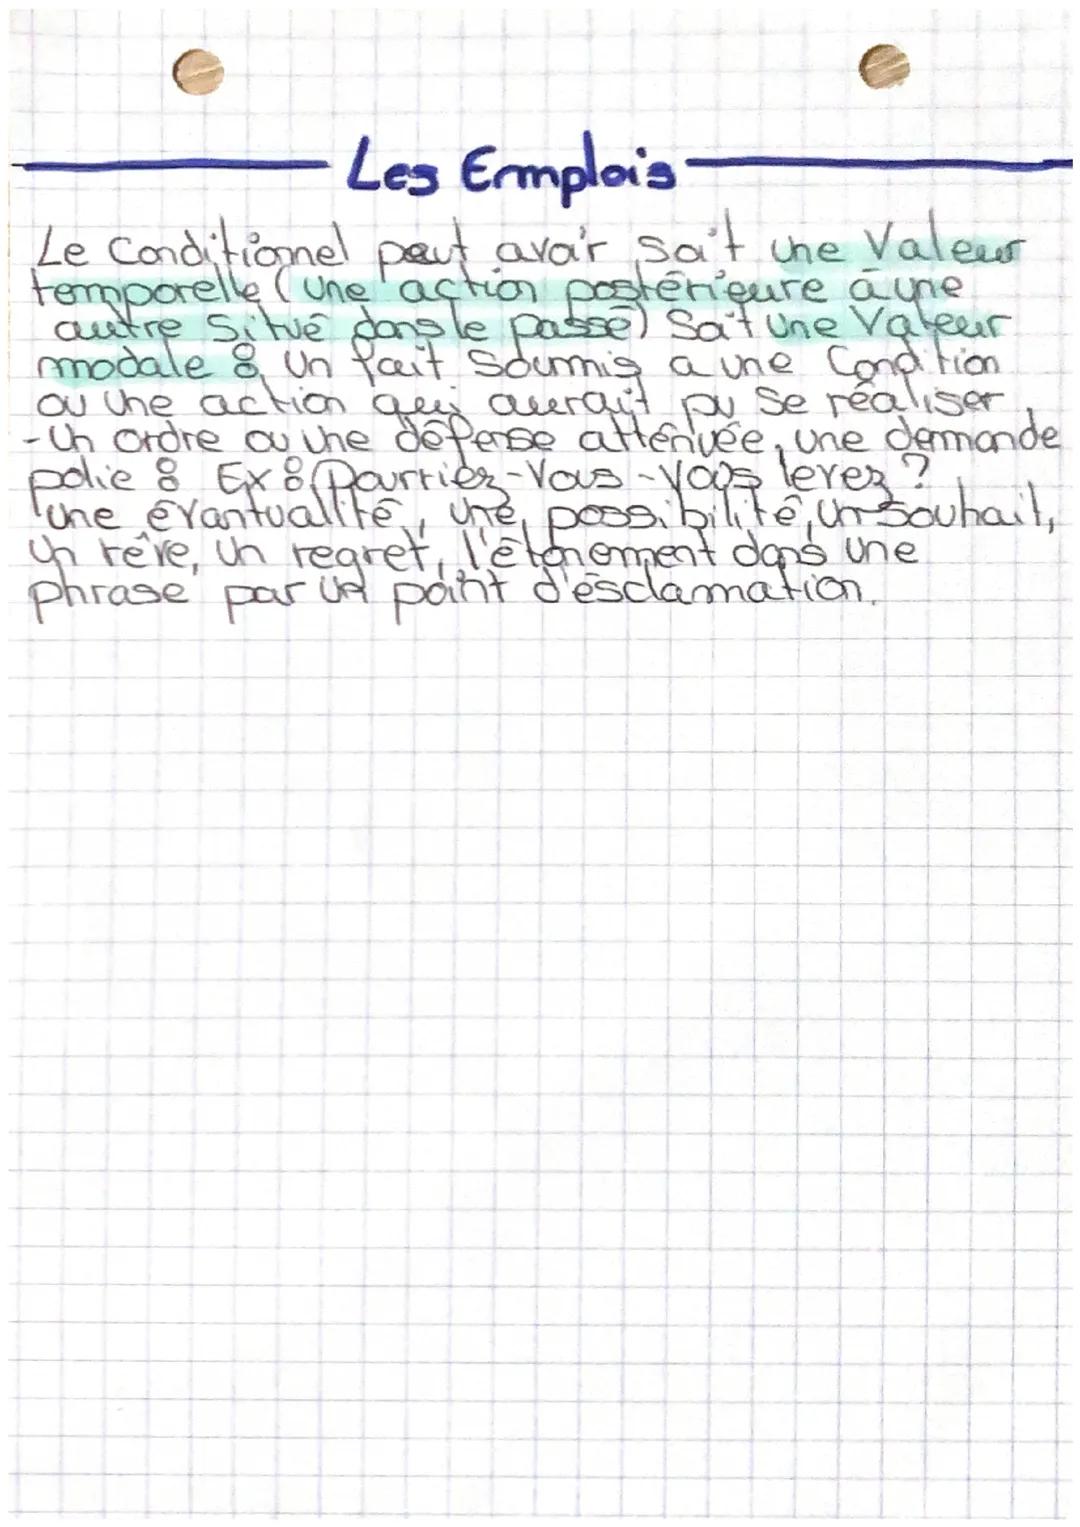 Les Emplois
Le Conditionnel peut avoir soit une Valeur
temporelle (une action postérieure à une
autre Situé dans le passé) Soit une Valeur
modale : Un fait Soumis a une Condition
ou une action qui aurait pu Se réaliser,
-Un ordre ou une défense atténuée, une demande
polie : Ex : Pourriez-Vous-vous levez ?
une évantualité, une possibilité, un Souhait,
Un rêve, Un regret, l'étonement dans une
phrase par un point d'esclamation.